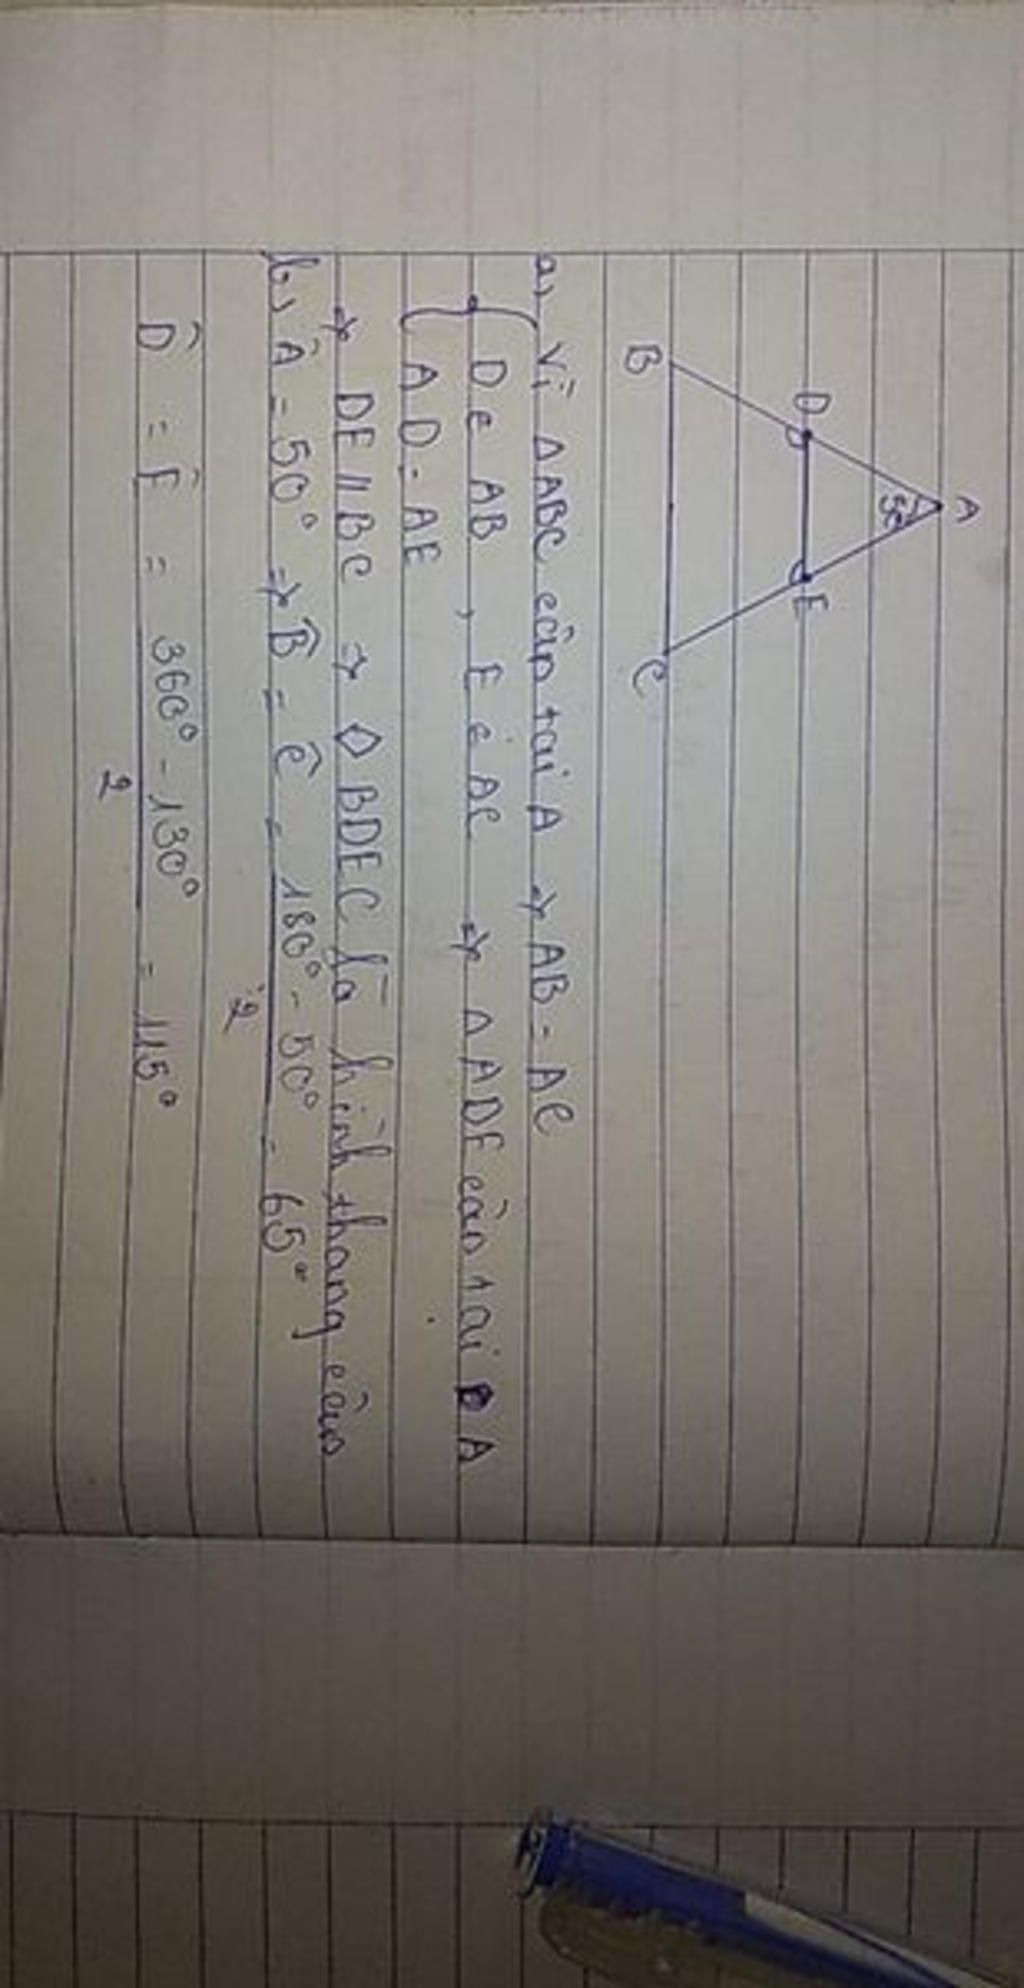 A
50
D E
B C
a, Vì ΔABC cân tại A → AB = AC
D ∈ AB , E ∈ AC ⇒ ΔADE cân tại A
AD = AE
→ DE // BC → ◇ BDEC là hình thang cân
b, Â = 50° ⇒ B̂ = Ĉ = 180° - 50° / 2 = 65°
D̂ = Ê = 360° - 130° / 2 = 115°